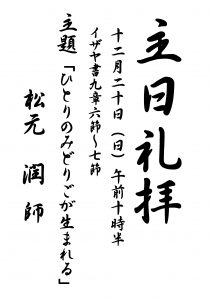 主日礼拝
十二月二十日（日）午前十時半
イザヤ書九章六節～七節
主題「ひとりのみどりごが生まれる」
松元　潤師